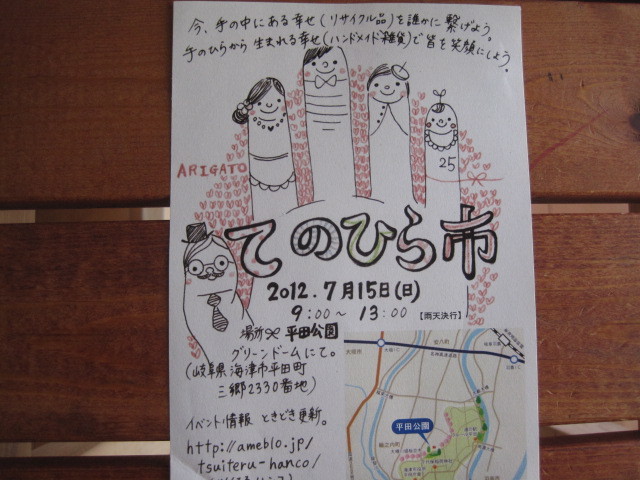 今、手の中にある幸せ(リサイクル品)を誰かに繋げよう。
手のひらから生まれる幸せ(ハンドメイド雑貨)で皆を笑顔にしよう。
ARIGATO
25
てのひら市
2012.7月15日(日)
9:00～13:00 【雨天決行】
場所 平田公園
グリーンドームにて。
(岐阜県海津市平田町
三郷2330番地)
イベント情報 ときどき更新。
http://ameblo.jp/
tsuiteru-hanco/
平田公園